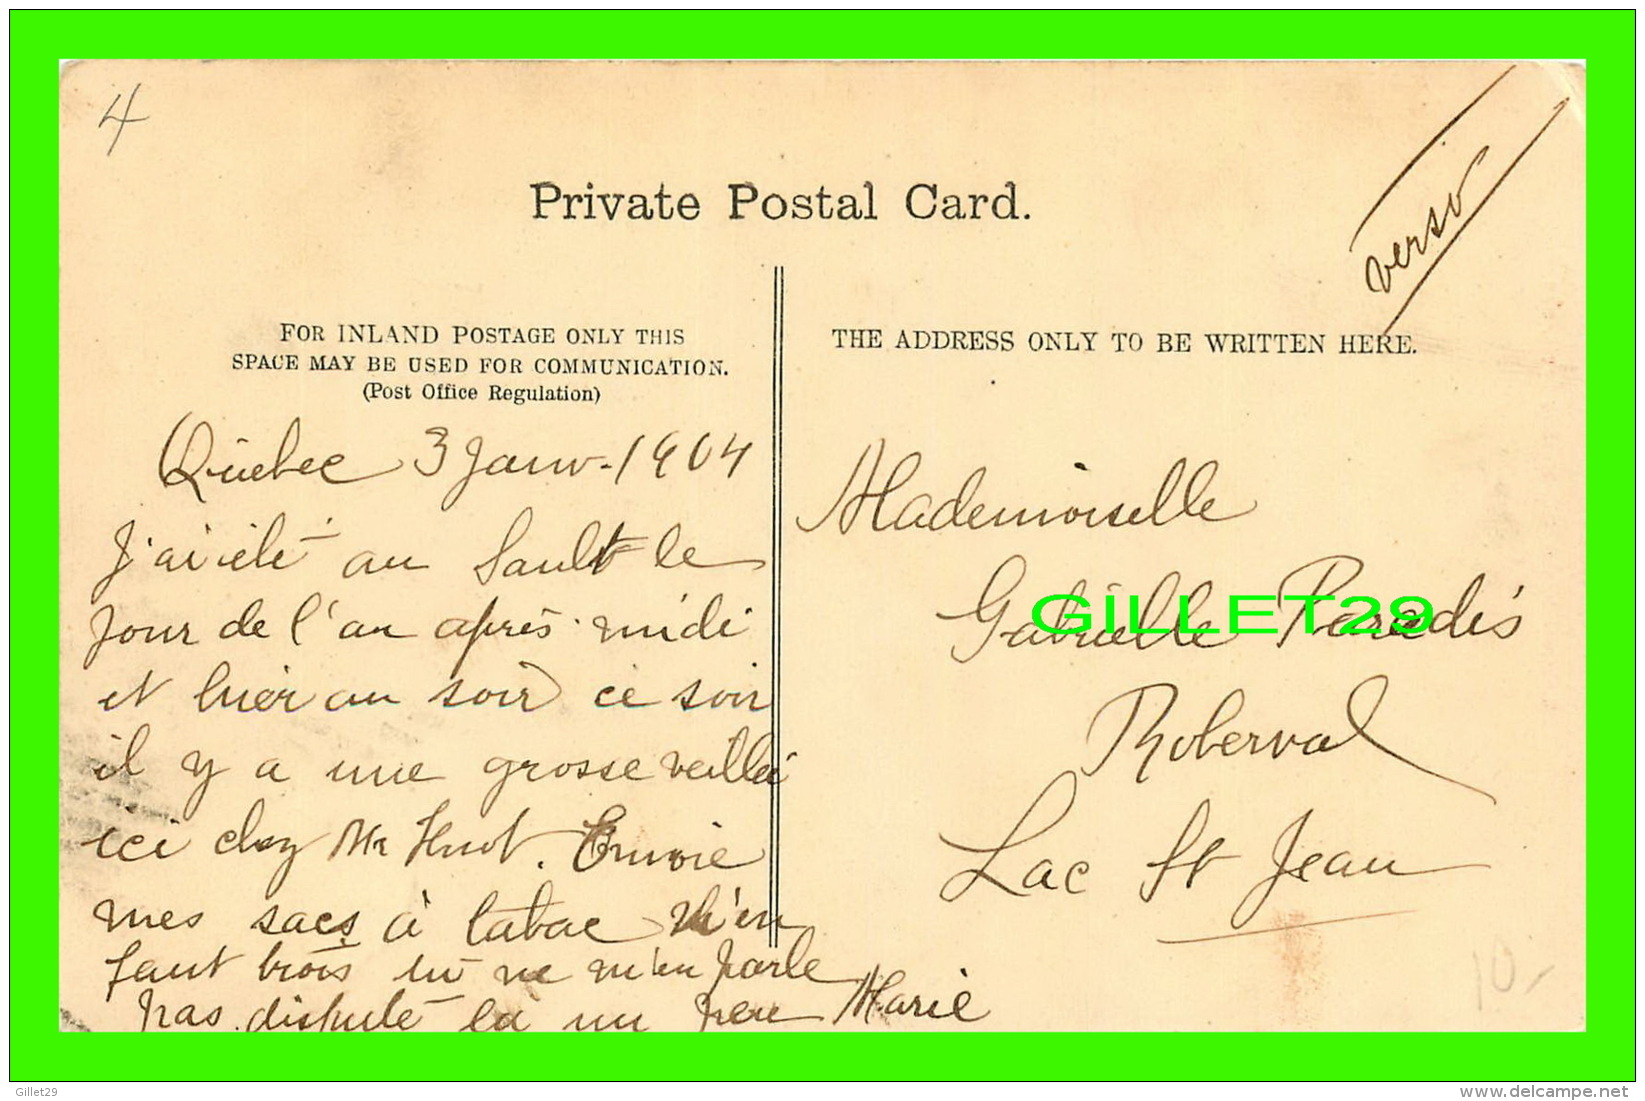 4
verso
Private Postal Card.
FOR INLAND POSTAGE ONLY THIS
SPACE MAY BE USED FOR COMMUNICATION.
(Post Office Regulation)
Quebec 3 Janv. 1904
J'ai été au Sault le
jour de l'an après-midi
et hier au soir ce soir
il y a une grosse veillée
ici chez Mr Huot. Envoie
mes sacs à tabac m'en
faut trois tu ne m'en parle
pas. dispute la un peu Marie
THE ADDRESS ONLY TO BE WRITTEN HERE.
Mademoiselle
Gabrielle Paradis
Roberval
Lac St Jean
10.-
GILLET29
Gillet29
www.delcampe.net